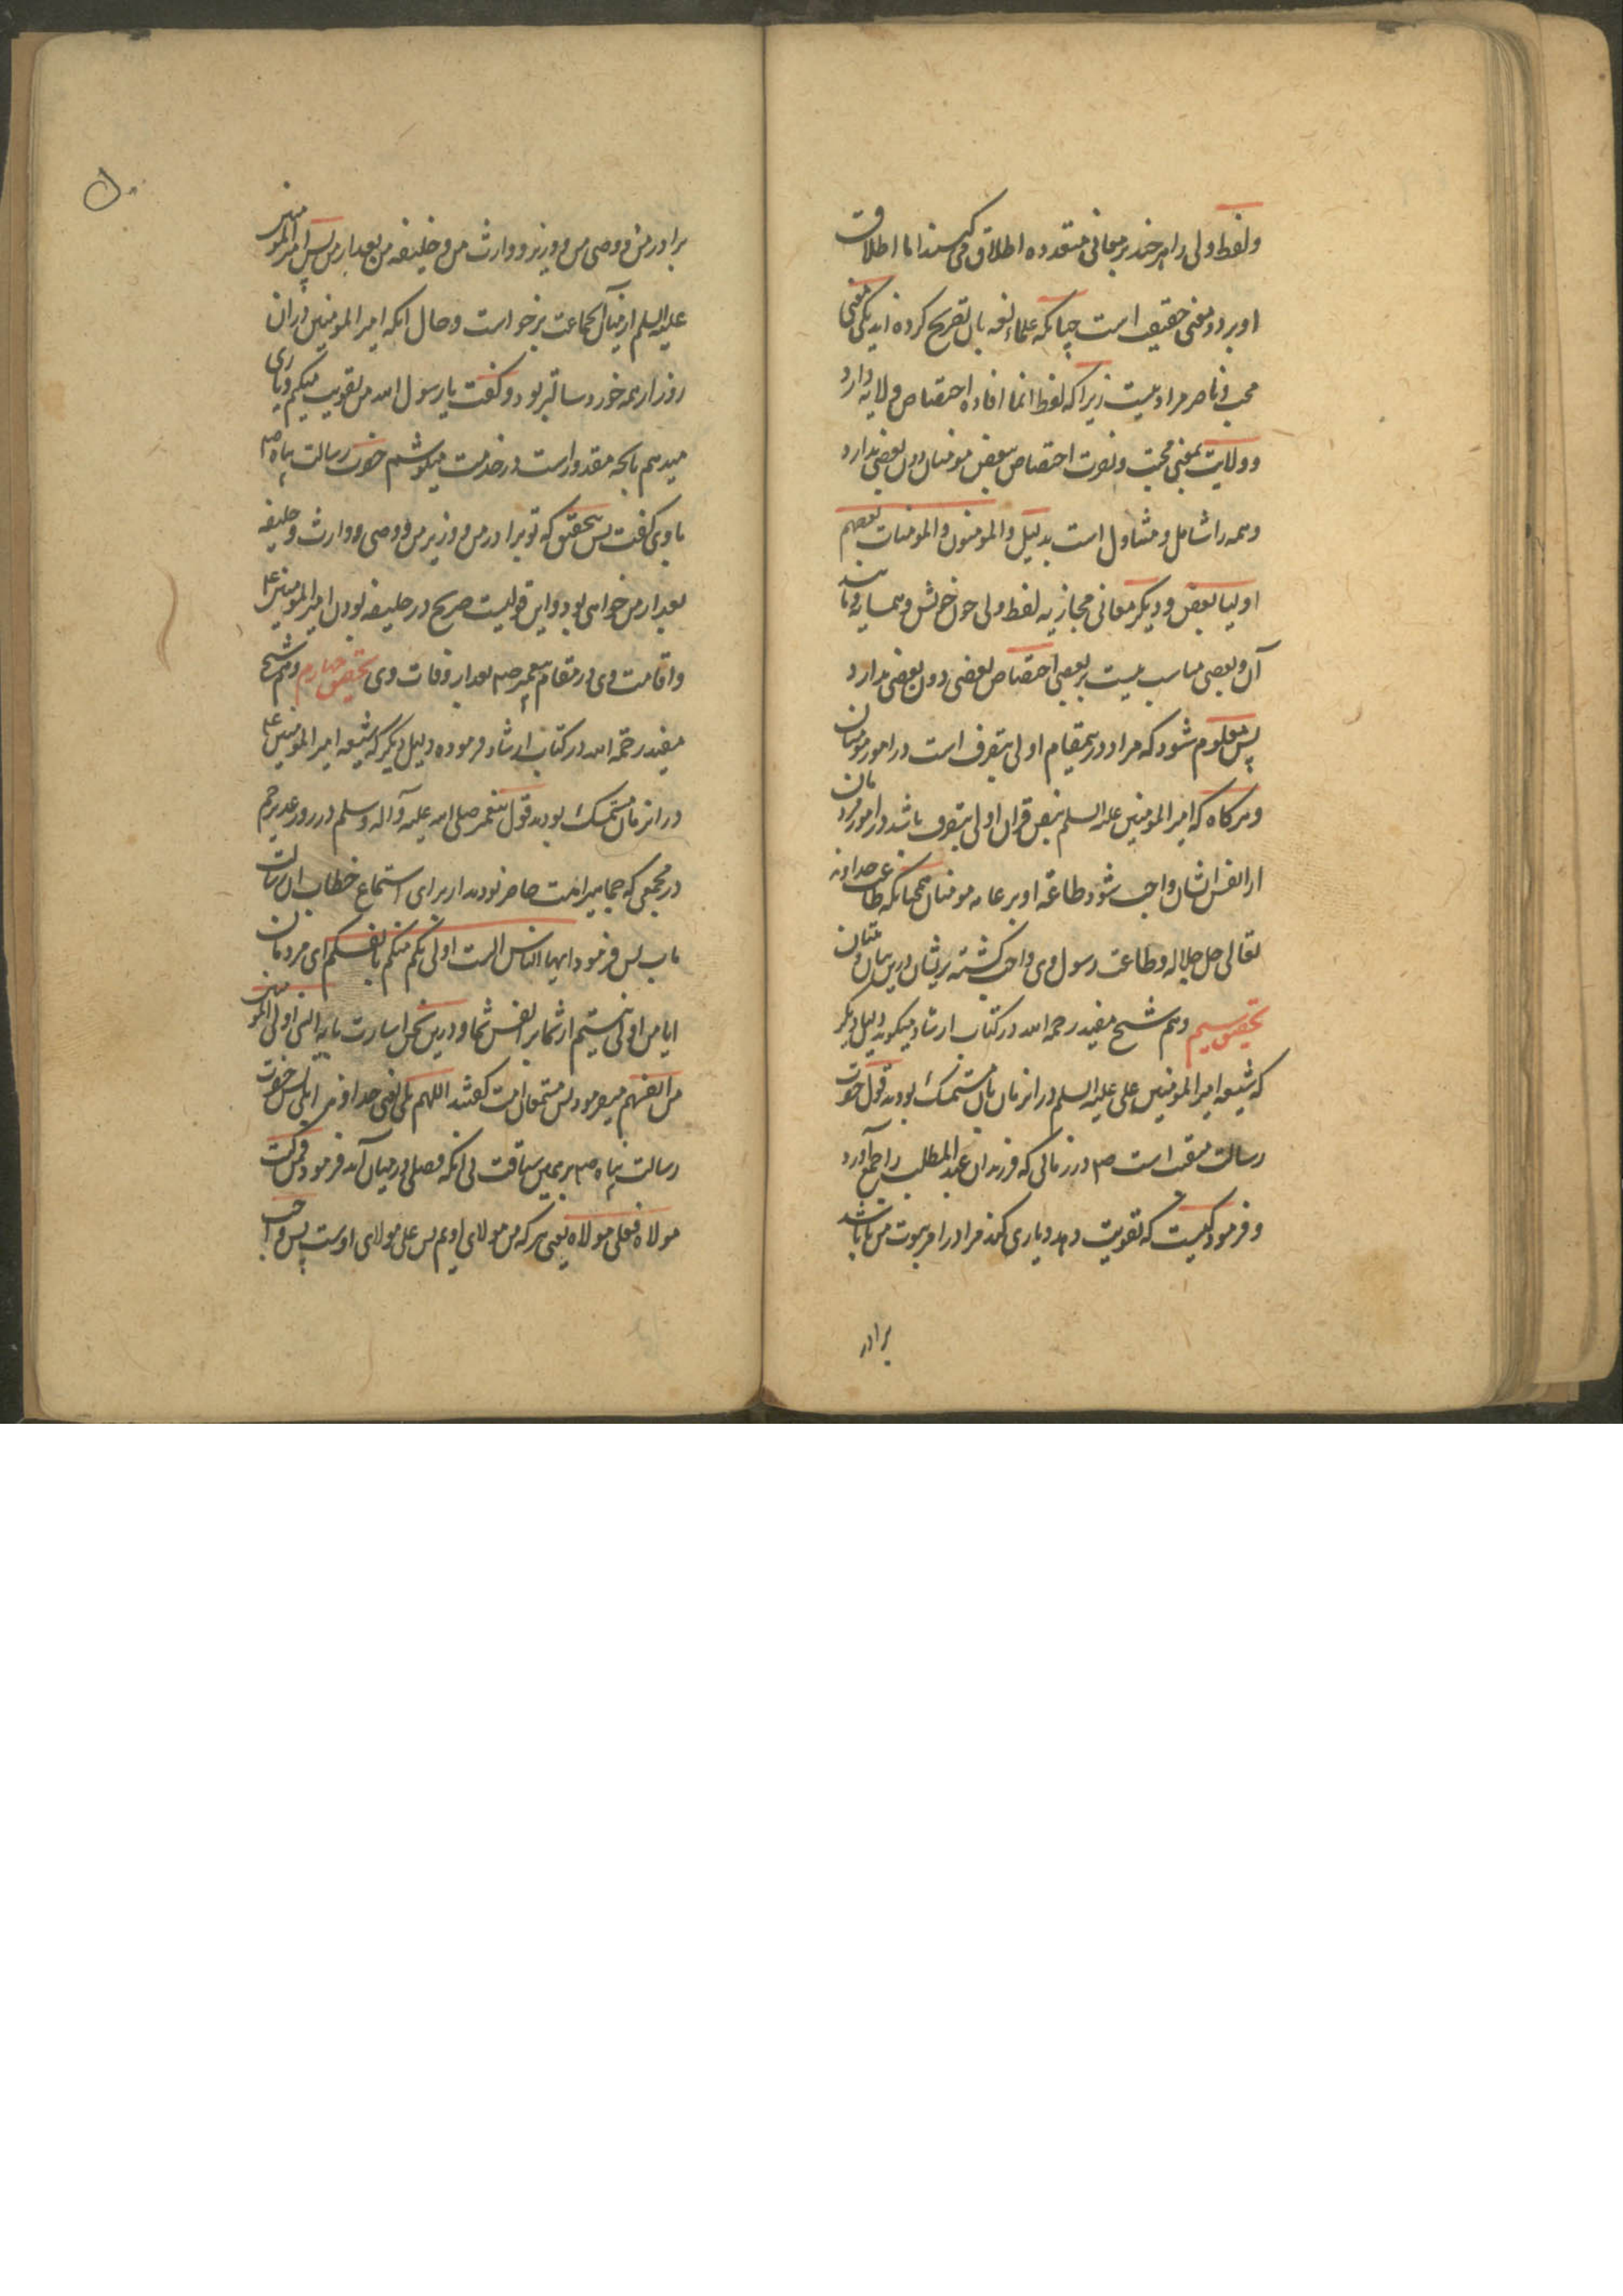 ولفظ ولی را هر چند بر معانی متعدده اطلاق می کنند اما اطلاق
او بر دو معنی حقیقت است چنانکه علماء لغه بان تصریح کرده اند یکی معنی
محب و ناصر مراد نیست زیرا که لفظ انما افاده اختصاص ولایه دارد
و ولایت بمعنی محبت و نصرت اختصاص ببعض مومنان دون بعضی ندارد
و همه را شامل و متناول است بدلیل والمومنون والمومنات بعضهم
اولیا بعض و دیگر معانی مجازیه لفظ ولی چون خویش و همسایه و مانند
آن و بعضی مناسب نیست بر بعضی اختصاص بعضی دون بعضی ندارد
پس معلوم شود که مراد درینمقام اولی بتصرف است در امور مومنان
و هرکاه که امیر المومنین علیه السلم بنص قران اولی بتصرف باشد در امور مردمان
از انفس ایشان واجب شود طاعة او بر عامه مومنان همچنانکه طاعت خداوند
تعالی جل جلاله و طاعت رسول وی واجب کشته بریشان درین
تحقیق سیم و هم شیخ مفید رحمه الله در کتاب ارشاد میکوید دلیل دیکر
که شیعه امیر المومنین علی علیه السلم در انزمان بان متمسک بودند قول حضرت
رسالت منقبت است صم در زمانی که فرزندان عبد المطلب را جمع آورد
و فرمود کیست که تقویت دهد و یاری کند مرا در امر نبوت من تا باشد
برادر
برادر من و وصی من و وزیر و وارث من و خلیفه من بعد از من پس امیر المومنین
علیه السلم از میان آنجماعت برخواست و حال انکه امیر المومنین در ان
روز از همه خورد سالتر بود و کفت یا رسول الله من تقویت میکنم و یاری
میدهم بانچه مقدور است در خدمت میکوشم حضرت رسالت پناه صم
باوی کفت پس بتحقیق که تو برادر من و وزیر من و وصی و وارث و خلیفه
بعد از من خواهی بود و این قولیست صریح در خلیفه بودن امیر المومنین ع
و اقامت وی در مقام پیغمبر صم بعد از وفات وی تحقیق چهارم و هم شیخ
مفید رحمه الله در کتاب ارشاد فرموده دلیل دیکر که شیعه امیر المومنین ع
در انزمان متمسک بودند قول پیغمبر صلی الله علیه و آله وسلم در روز غدیر خم
در مجمعی که جماهیر امت حاضر بودند از برای استماع خطاب ان رسالت
ماب پس فرمود ایها الناس الست اولی بکم منکم بانفسکم ای مردمان
ایا من اولی نیستم از شما بر نفس شما و درین سخن اشارت بایه النبی اولی بالمومنین
من انفسهم میفرمود پس مستمعان امت کفتند اللهم بلی یعنی خداوندا بلی پس حضرت
رسالت پناه صم برین سیاقت بی انکه فصلی در میان آید فرمود فمن کنت
مولاه فعلی مولاه یعنی هر که من مولای اویم پس علی مولای اوست پس واجب